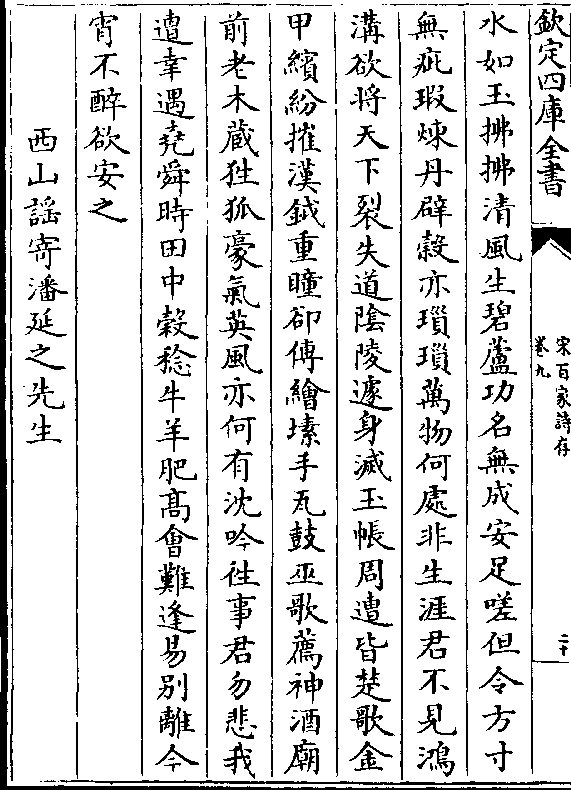 欽定四庫全書
宋百家詩存
卷九
二十
水如玉拂拂清風生碧蘆功名無成安足嗟但令方寸
無疵瑕煉丹辟穀亦瑣瑣萬物何處非生涯君不見鴻
溝欲將天下裂失道陰陵遽身滅玉帳周遭皆楚歌金
甲繽紛摧漢鉞重瞳卻傳繪塐手瓦鼓巫歌薦神酒廟
前老木蔵狌狐豪氣英風亦何有沈吟徃事君勿悲我
遭幸遇堯舜時田中榖稔牛羊肥髙㑹難逢易别離今
宵不醉欲安之
西山謡寄潘延之先生